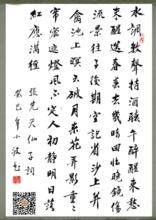 水調數聲持酒聽午醉醒來愁
未醒送春春去幾時回臨晚鏡傷
流景往事後期空記省沙上并
禽池上暝雲破月來花弄影重重
簾幕密遮燈風不定人初靜明日落
紅應滿徑 張先天仙子詞
癸巳年小